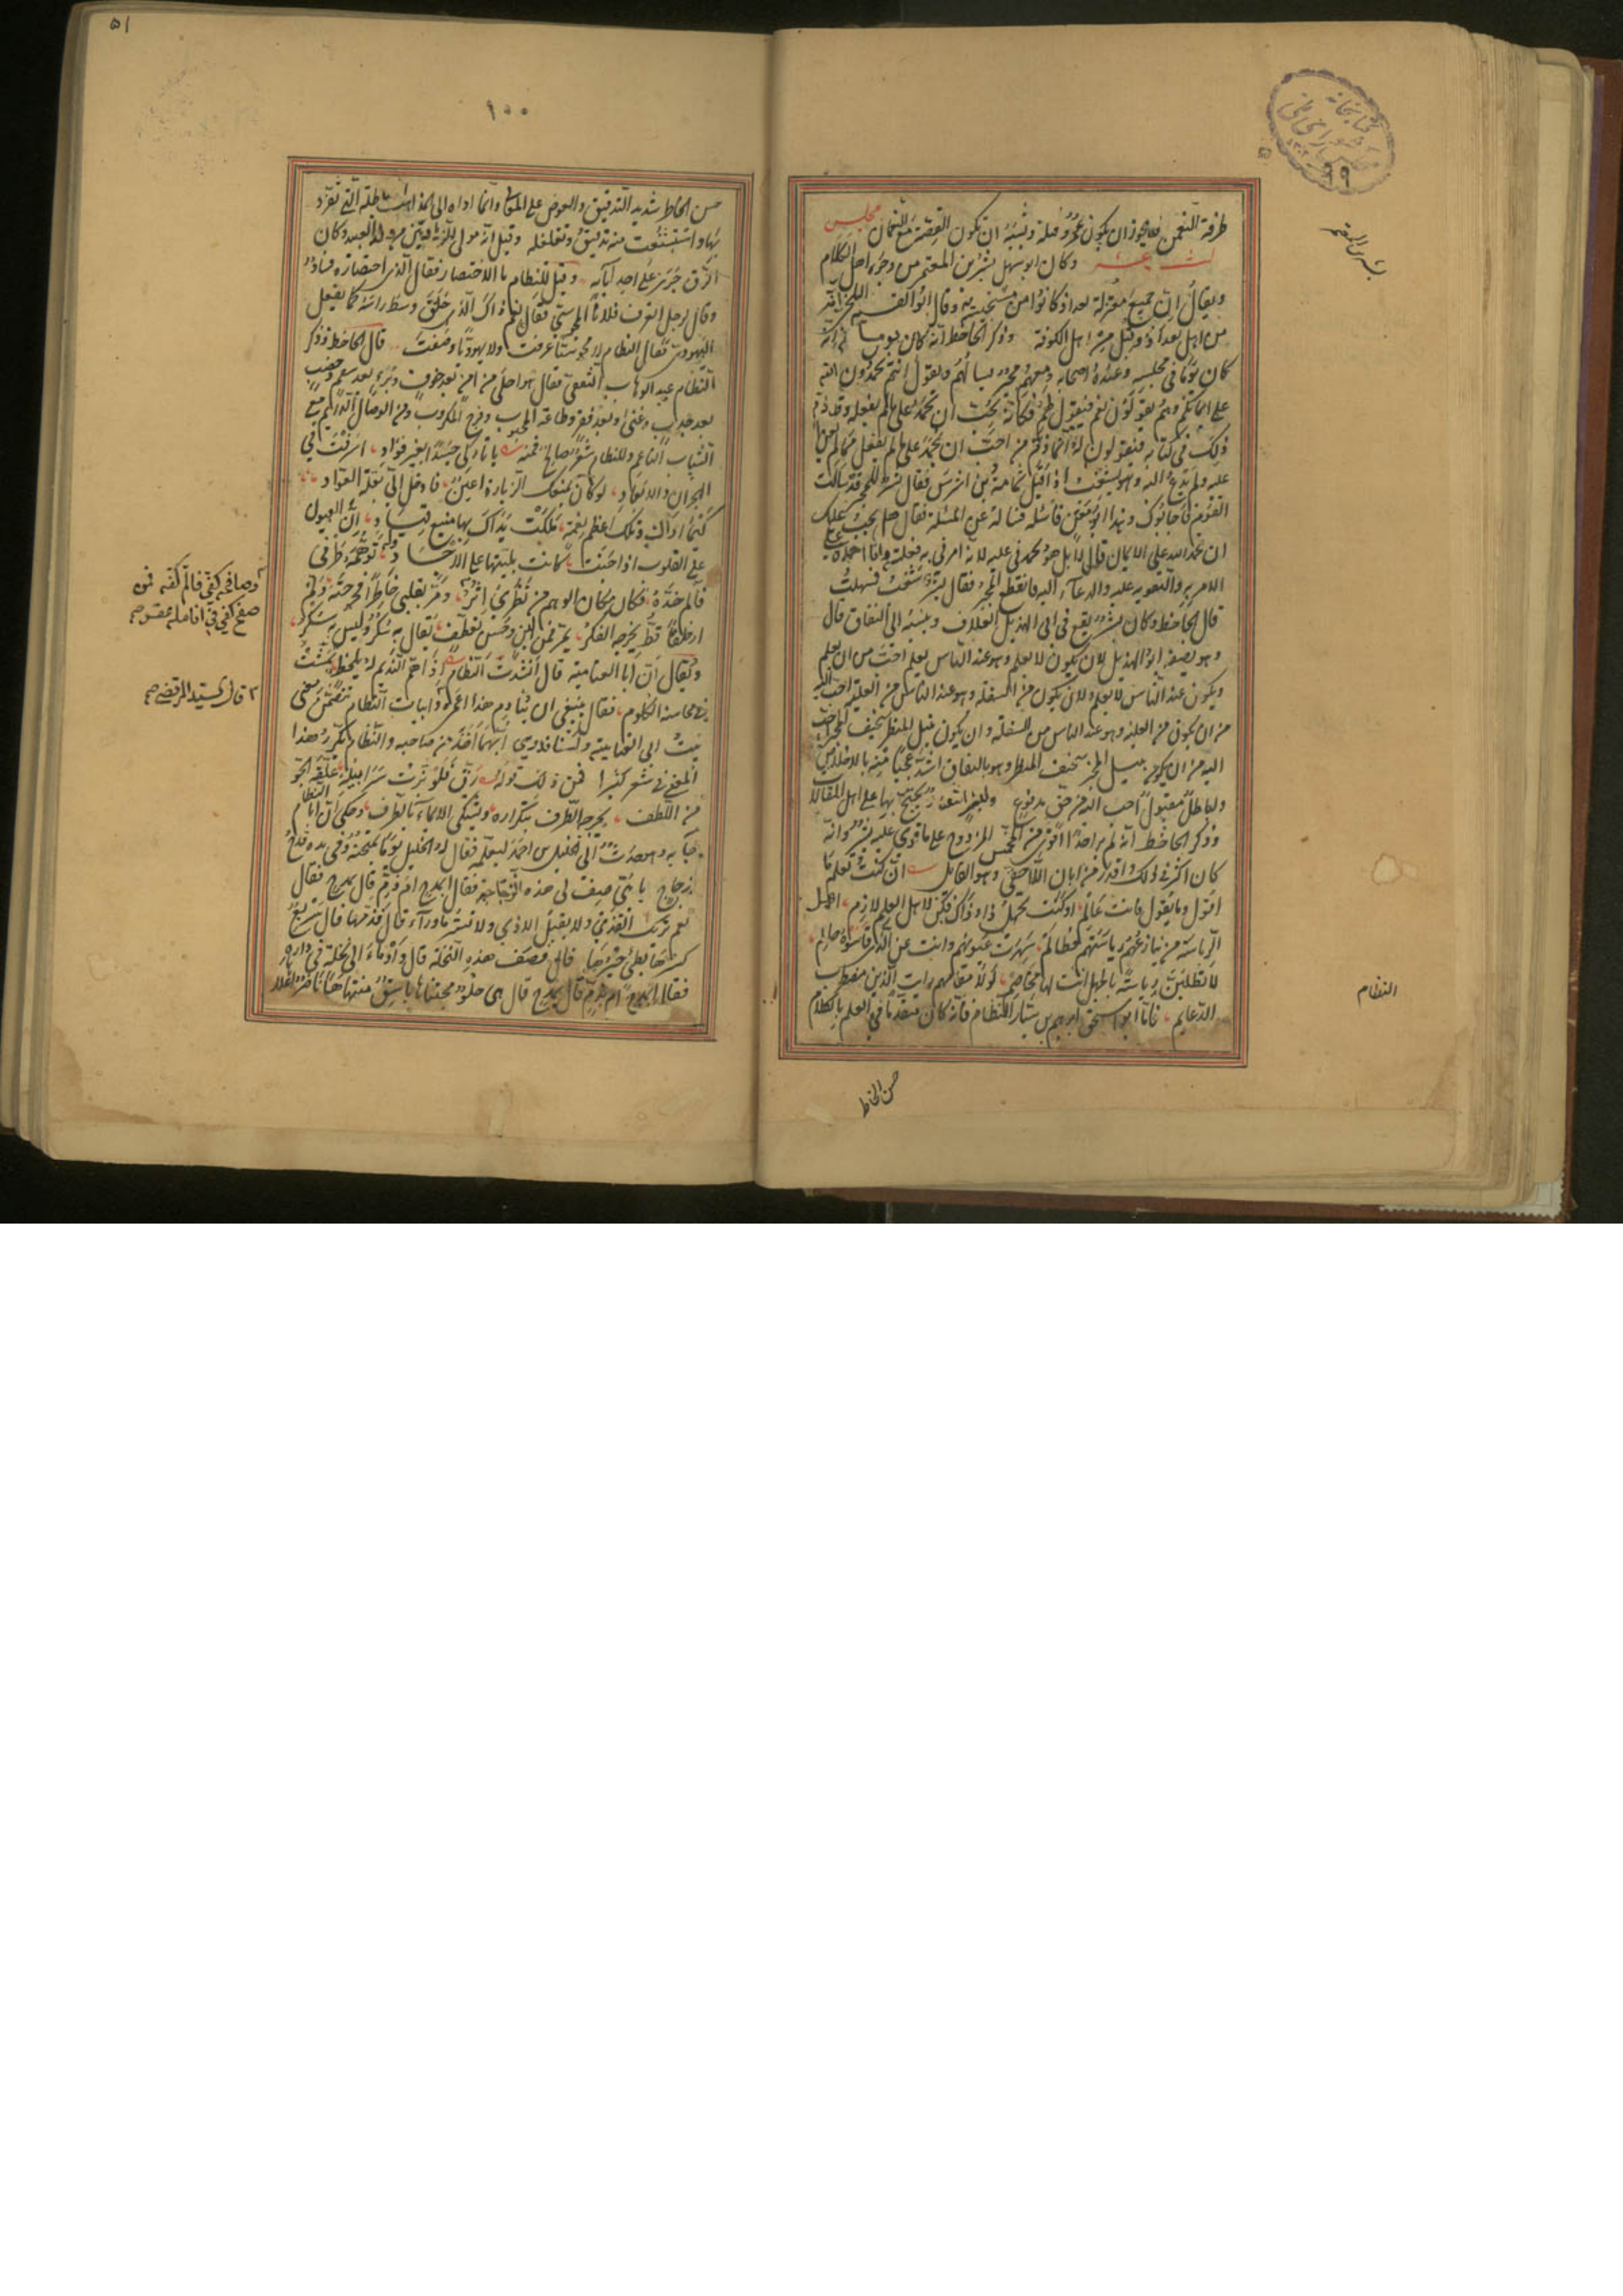 بشر بن المعتمر
طرفة النعمن فلا يجوز ان يكون عمرو قتله ويشبه ان تكون القصة مع النعمان مجلس
ثالث عشر وكان ابو سهل بشر بن المعتمر من وجوه اهل الكلام
ويقال ان جميع معتزلة بغداد كانوا من مستجيبيه وقال ابو القسم البلخي انه
من اهل بغداد وقيل من اهل الكوفة وذكر الجاحظ انه كان
كان يوما في مجلسه وعنده اصحابه ومعهم مجبر يسالهم ويقول انتم تحمدون الله
على ايمانكم وهم يقولون نعم فيقول لهم فكانه يحب ان يحمد على ما لم يفعله وقد ذم
ذلك في كتابه فيقولون له انما ذم من احب ان يحمد على ما لم يفعل ممن لم يعن
عليه ولم يدع اليه وهو يشغب اذ اقبل ثمامة بن اشرس فقال بشر للمجبر قد سالت
القوم فاجابوك وهذا ابو معن فاسئله فساله عن المسئلة فقال هل يجب عليك
ان تحمد الله على الايمان قال لا بل هو يحمدني عليه لانه امرني به ففعلته وانا احمده على
الامر به والتقوية عليه والدعاء اليه فانقطع المجبر فقال بشر شنعت فسهلت
قال الجاحظ وكان بشر يقع في ابي الهذيل العلاف وينسبه الى النفاق قال
وهو يصف ابو الهذيل لان يكون لا يعلم وهو عند الناس يعلم احب من ان يعلم
ويكون عند الناس لا يعلم ولان يكون من السفلة وهو عند الناس من العلية احب اليه
من ان يكون من العلية وهو عند الناس من السفلة وان يكون نبيل المنظر سخيف المخبر احب
اليه من ان يكون نبيل المخبر سخيف المنظر وهو بالنفاق اشد عجبا منه بالاخلاص
ولباطل مقبول احب اليه من حق مدفوع ولبشر اشعار يحتج بها على اهل المقالات
وذكر الجاحظ انه لم ير احدا اقوى من المخمس المزدوج على ما قوي عليه بشر وانه
كان اكثر في ذلك واقدر من ابان اللاحقي وهو القائل ان كنت تعلم ما
اقول وما تقول فانت عالم او كنت تجهل ذا وذاك فكن لاهل العلم لازم اهل
الرياسة من ينازعهم رياستهم فظالم سهرت عيونهم وانت عن الذي قاسوه حالم
لا تطلبن رياسة بالجهل انت لها مخاصم لولا مقامهم رايت الدين مضطرب
الدعايم فاما ابو اسحق ابرهيم بن سيار النظام فانه كان متقدما في العلم بالكلام
النظام
حسن الخاطر
٥١
١٠٠
حسن الخاطر شديد التدقيق والغوص على المعاني وانما اداه الى المذاهب الباطلة التي تفرد
بها واستشنعت منه تدقيقه وتغلغله وقيل انه مولى الزياديين من ولد العبيد وكان
الرق جرى على احد آبائه وقيل للنظام ما الاختصار فقال الذي اختصاره فساد
وقال رجل اتعرف فلانا المجوسي فقال نعم ذاك الذي حلق وسط راسه كما يفعل
اليهودي فقال النظام لا مجوسيا عرفت ولا يهوديا وصفت قال الجاحظ وذكر
النظام عبد الوهاب الثقفي فقال هو احلى من امن بعد خوف وبرء بعد سقم وخصب
بعد جدب وغنى بعد فقر وطاعة المحبوب وفرج المكروب ومن الوصال الدائم مع
الشباب الناعم وللنظام شعر صالح فمنه يا تاركي جسدا بغير فؤاد اسرفت في
الهجران والابعاد لو كان يمنعك الزيارة اعين فادخل الي بعلة العواد
كيما اراك وتلك اعظم نعمة ملكت يداك بها منيع قيادي ان العيون
على القلوب اذا جنت كانت بليتها على الاجساد وله توهمه طرفي
فآلم خده فكان مكان الوهم من نظري اثر ومر بقلبي خاطرا فجرحته ولم
ار خلقا قط يجرحه الفكر يمر فمن لين وحسن تعطف يقال به سكر وليس به سكر
ويقال ان ابا العتاهية قال انشدت النظام اذا هم النديم له بلحظ تمشت
في محاسنه الكلوم فقال ينبغي ان ينادم هذا اعمى وابيات النظام تتضمن معنى
بيت ابي العتاهية ولسنا ندري ايهما اخذ من صاحبه والنظام يكرر هذا
المعنى في شعره كثيرا فمن ذلك قوله رق فلو بزت سرابيله علقه الجو
من اللطف يجرحه الطرف بتكراره ويشتكي الايماء بالطرف وحكي ان ابا النظام
جاء به وهو حدث الى الخليل بن احمد ليعلمه فقال له الخليل يوما يمتحنه وفي يده قدح
زجاج يا بني صف لي هذه الزجاجة فقال ابمدح ام بذم قال بمدح فقال
نعم تريك القذى ولا يقبل الاذى ولا تستر ما وراء قال فذمها قال سريع
كسرها بطئ جبرها قال فصف هذه النخلة قال واوماء الى نخلة في داره
فقال ابمدح ام بذم قال بمدح قال هي حلو مجتناها باسق منتهاها ناضر اعلاها
وصافحه كفي فآلم كفه فمن
صفح كفي في انامله عقر صح
قال السيد المرتضى صح